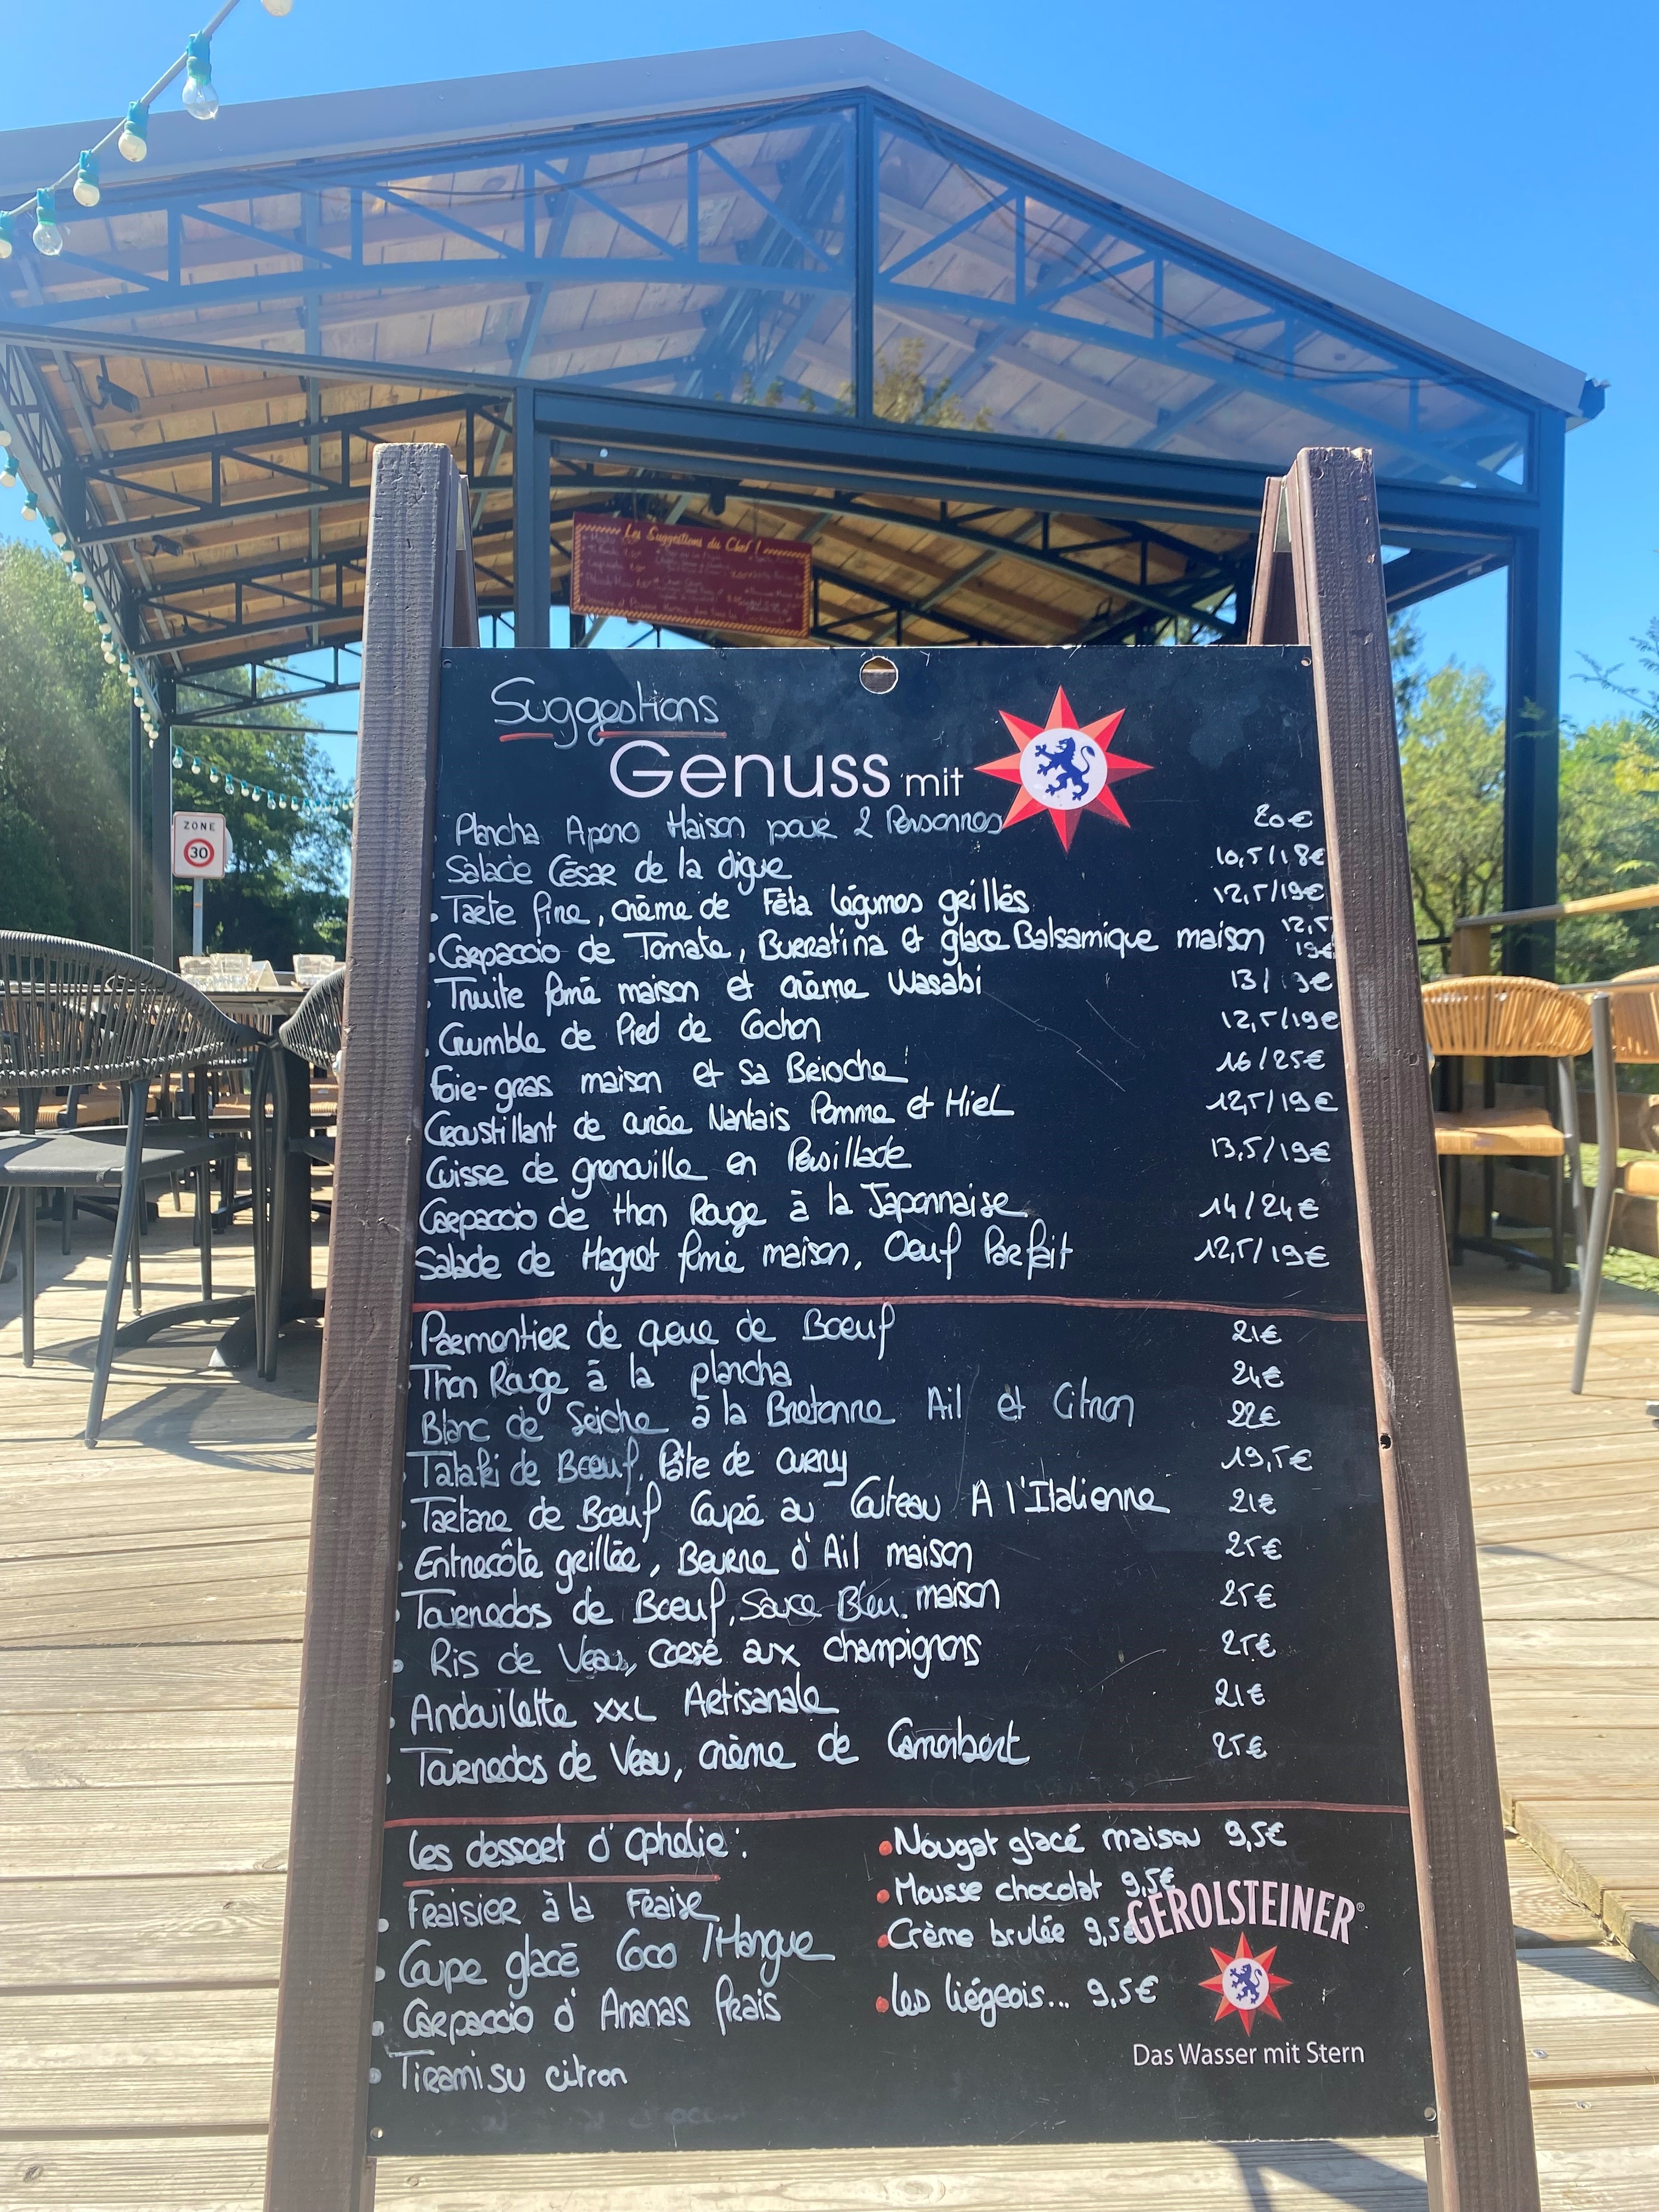 Les Suggestions du Chef !
ZONE
30
Suggestions
Genuss mit
Plancha Apero Maison pour 2 Personnes 20€
Salade César de la digue 10,5/18€
Tarte fine, crème de Féta légumes grillés 12,5/19€
Carpaccio de Tomate, Burratina et glace Balsamique maison 12,5 19€
Truite fumé maison et crème Wasabi 13/19€
Crumble de Pied de Cochon 12,5/19€
Foie-gras maison et sa Brioche 16/25€
Croustillant de curée Nantais Pomme et Miel 12,5/19€
Cuisse de grenouille en Persillade 13,5/19€
Carpaccio de thon Rouge à la Japonnaise 14/24€
Salade de Magret fumé maison, Oeuf Parfait 12,5/19€
Parmontier de queue de Boeuf 21€
Thon Rouge à la plancha 24€
Blanc de Seiche à la Bretonne Ail et Citron 22€
Tataki de Boeuf, Pâte de curry 19,5€
Tartare de Boeuf Coupé au Couteau A l'Italienne 21€
Entrecôte grillée, Beurre d'Ail maison 25€
Tournedos de Boeuf, Sauce Bleu maison 25€
Ris de Veau, corsé aux champignons 25€
Andouilette XXL Artisanale 21€
Tournedos de Veau, crème de Camembert 25€
Les dessert d'Ophelie :
Fraisier à la Fraise
Coupe glacé Coco / Mangue
Carpaccio d'Ananas frais
Tiramisu citron
Nougat glacé maison 9,5€
Mousse chocolat 9,5€
Crème brulée 9,5€
Les liégeois... 9,5€
GEROLSTEINER®
Das Wasser mit Stern